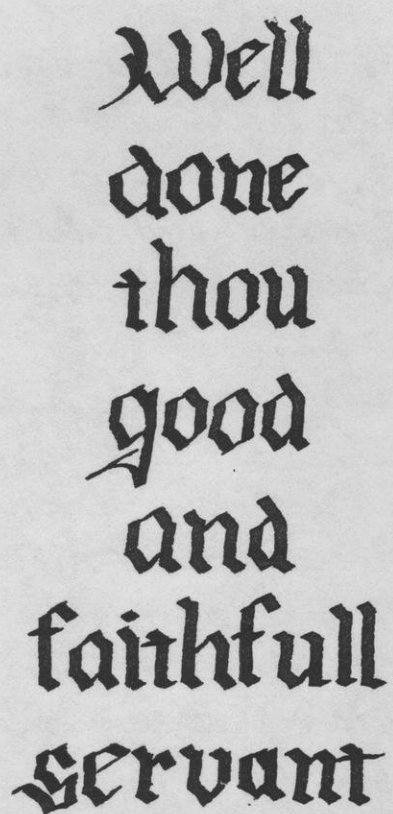 Well
done
thou
good
and
faithfull
servant